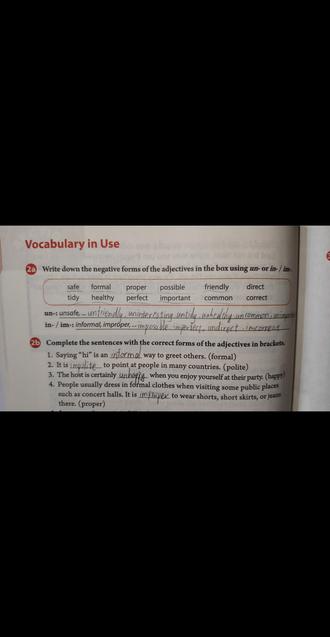 Vocabulary in Use
2a Write down the negative forms of the adjectives in the box using un- or in- / im-.
safe formal proper possible friendly direct
tidy healthy perfect important common correct
un-: unsafe, unfriendly, uninteresting untidy, unhealthy uncommon,
in- / im-: informal, improper, impossible imperfect, indirect incorrect
2b Complete the sentences with the correct forms of the adjectives in brackets.
1. Saying "hi" is an informal way to greet others. (formal)
2. It is impolite to point at people in many countries. (polite)
3. The host is certainly unhappy when you enjoy yourself at their party. (happy)
4. People usually dress in formal clothes when visiting some public places
such as concert halls. It is improper to wear shorts, short skirts, or jeans
there. (proper)